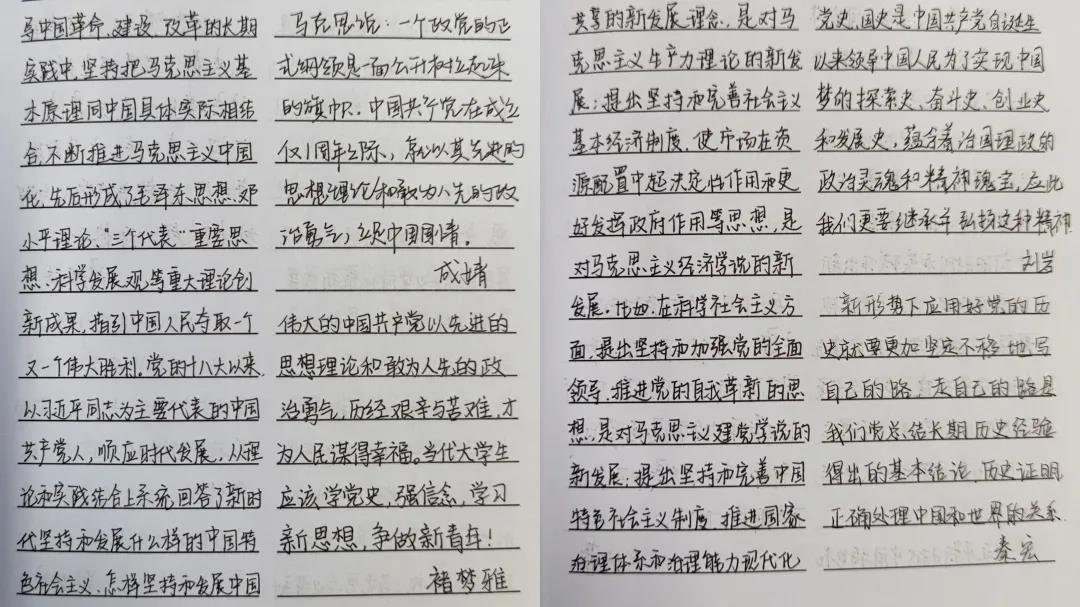 与中国革命、建设、改革的长期
实践中,坚持把马克思主义基
本原理同中国具体实际相结
合,不断推进马克思主义中国
化,先后形成了毛泽东思想、邓
小平理论、“三个代表”重要思
想、科学发展观等重大理论创
新成果,指引中国人民夺取一个
又一个伟大胜利。党的十八大以来,
以习近平同志为主要代表的中国
共产党人,顺应时代发展,从理
论和实践结合上系统回答了新时
代坚持和发展什么样的中国特
色社会主义、怎样坚持和发展中国
马克思说:一个政党的正
式纲领是一面公开树立起来
的旗帜。中国共产党在成立
仅1周年之际,就以其先进的
思想理论和敢为人先的政
治勇气,立足中国国情。
成婧
伟大的中国共产党以先进的
思想理论和敢为人先的政
治勇气,历经艰辛与苦难,才
为人民谋得幸福。当代大学生
应该学党史,强信念,学习
新思想,争做新青年!
褚梦雅
共享的新发展理念,是对马
克思主义生产力理论的新发
展;提出坚持和完善社会主义
基本经济制度,使市场在资
源配置中起决定性作用和更
好发挥政府作用等思想,是
对马克思主义经济学说的新
发展。比如,在科学社会主义方
面,提出坚持和加强党的全面
领导,推进党的自我革新的思
想,是对马克思主义建党学说的
新发展;提出坚持和完善中国
特色社会主义制度,推进国家
治理体系和治理能力现代化
党史、国史是中国共产党自诞生
以来领导中国人民为了实现中国
梦的探索史、奋斗史、创业史
和发展史,蕴含着治国理政的
政治灵魂和精神瑰宝,应此
我们更要继承并弘扬这种精神
刘岩
新形势下应用好党的历
史就要更加坚定不移地写
自己的路,走自己的路是
我们党总结长期历史经验
得出的基本结论,历史证明
正确处理中国和世界的关系.
秦宏